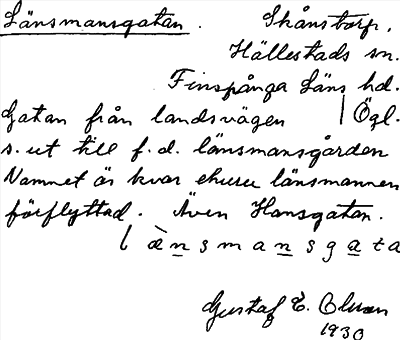 Länsmansgatan. Skånstorp,
Hällestads sn.
Finspånga Läns hd.
Gatan från landsvägen | Ögl.
s. ut till f. d. länsmansgården
Namnet är kvar ehuru länsmannen
förflyttad. Även Hansgatan.
l ænsmansgata
Gustaf E.
1930